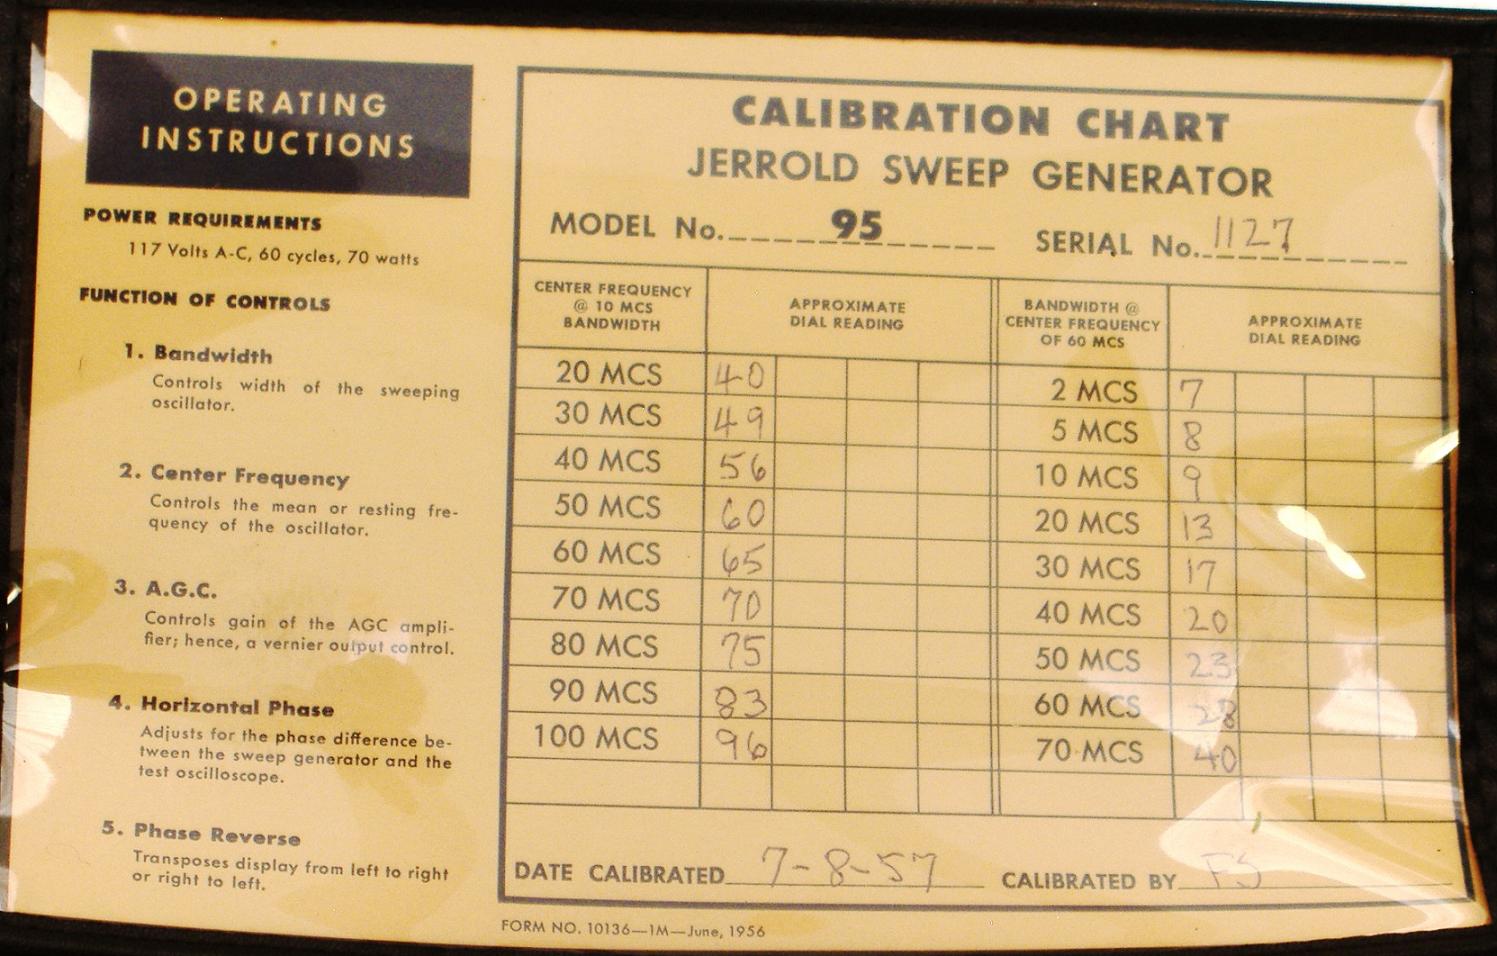 OPERATING
INSTRUCTIONS
POWER REQUIREMENTS
117 Volts A-C, 60 cycles, 70 watts
FUNCTION OF CONTROLS
1. Bandwidth
Controls width of the sweeping
oscillator.
2. Center Frequency
Controls the mean or resting fre-
quency of the oscillator.
3. A.G.C.
Controls gain of the AGC ampli-
fier; hence, a vernier output control.
4. Horizontal Phase
Adjusts for the phase difference be-
tween the sweep generator and the
test oscilloscope.
5. Phase Reverse
Transposes display from left to right
or right to left.
CALIBRATION CHART
JERROLD SWEEP GENERATOR
MODEL No. 95 SERIAL No. 1127
CENTER FREQUENCY
@ 10 MCS
BANDWIDTH
APPROXIMATE
DIAL READING
20 MCS 40
30 MCS 49
40 MCS 56
50 MCS 60
60 MCS 65
70 MCS 70
80 MCS 75
90 MCS 83
100 MCS 96
BANDWIDTH @
CENTER FREQUENCY
OF 60 MCS
APPROXIMATE
DIAL READING
2 MCS 7
5 MCS 8
10 MCS 9
20 MCS 13
30 MCS 17
40 MCS 20
50 MCS 23
60 MCS 28
70 MCS 40
DATE CALIBRATED 7-8-57 CALIBRATED BY FS
FORM NO. 10136—1M—June, 1956